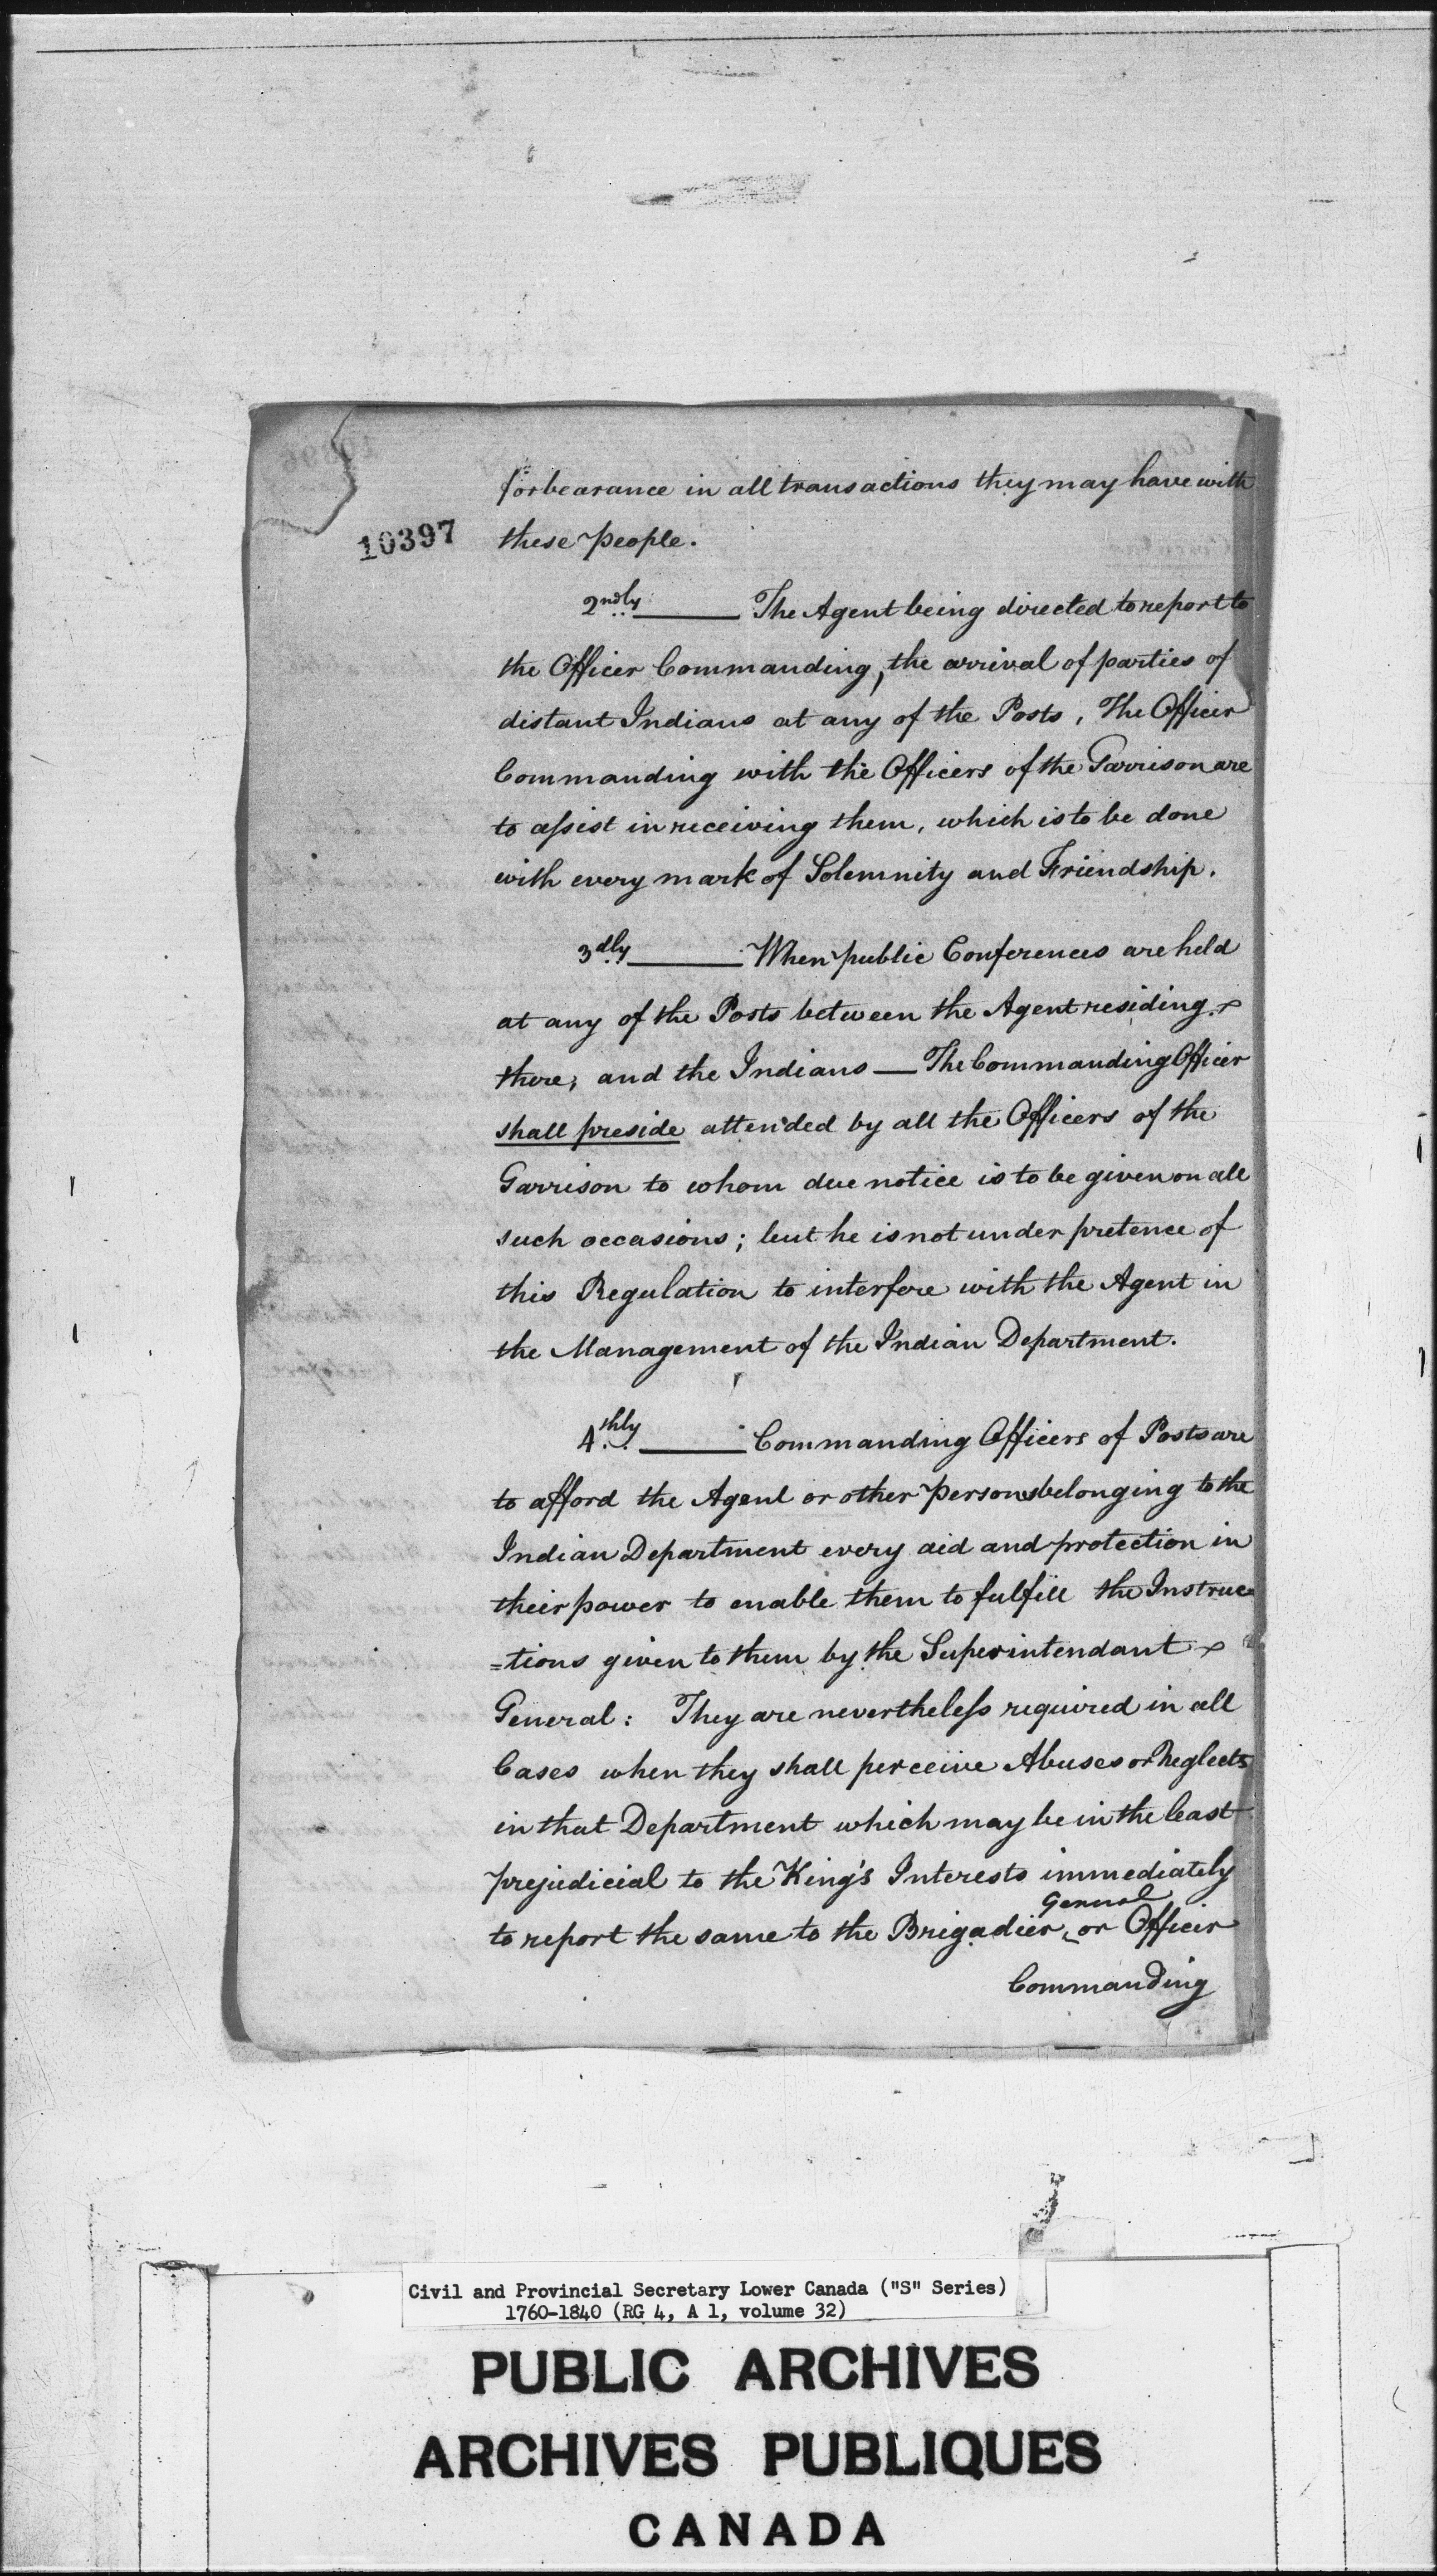 forbearance in all transactions they may have with
10397
these people.
2ndly ——— The Agent being directed to report to
the Officer Commanding, the arrival of parties of
distant Indians at any of the Posts, The Officer
Commanding with the Officers of the Garrison are
to assist in receiving them, which is to be done
with every mark of Solemnity and Friendship.
3dly ——— When public Conferences are held
at any of the Posts between the Agent residing
there, and the Indians — The Commanding Officer
shall preside attended by all the Officers of the
Garrison to whom due notice is to be given on all
such occasions; but he is not under pretence of
this Regulation to interfere with the Agent in
the Management of the Indian Department.
4thly ——— Commanding Officers of Posts are
to afford the Agent or other persons belonging to the
Indian Department every aid and protection in
their power to enable them to fulfill the Instruc=
=tions given to them by the Superintendant
General: They are nevertheless required in all
Cases when they shall perceive Abuses or Neglects
in that Department which may be in the least
prejudicial to the King's Interests immediately
General
to report the same to the Brigadier ‸ or Officer
Commanding
Civil and Provincial Secretary Lower Canada ("S" Series)
1760-1840 (RG 4, A 1, volume 32)
PUBLIC ARCHIVES
ARCHIVES PUBLIQUES
CANADA